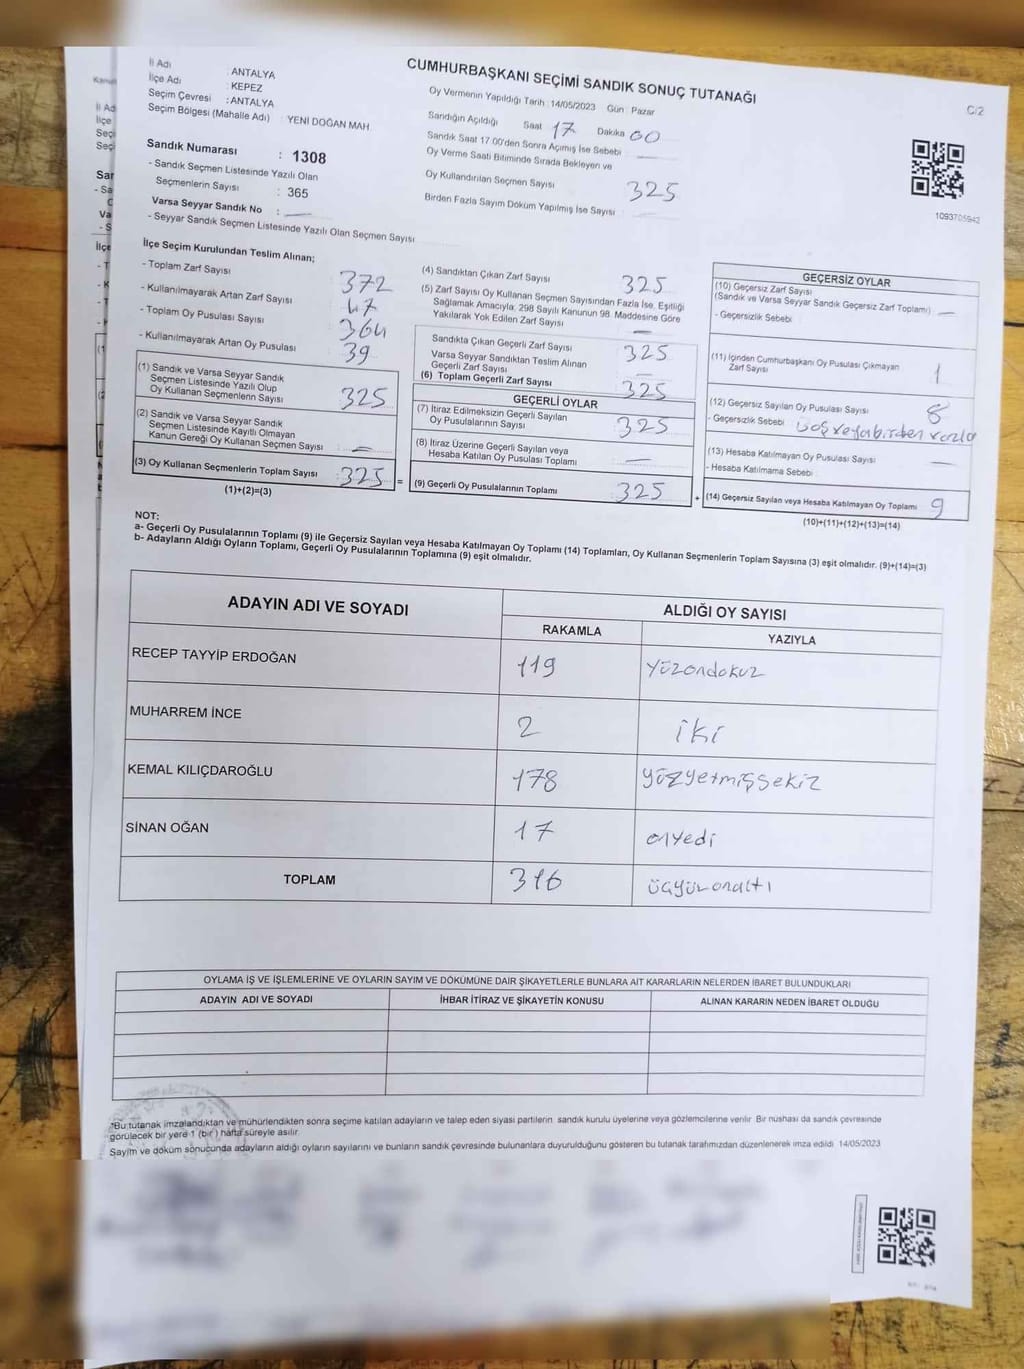 CUMHURBAŞKANI SEÇİMİ SANDIK SONUÇ TUTANAĞI
C/2
İl Adı : ANTALYA
İlçe Adı : KEPEZ
Seçim Çevresi : ANTALYA
Seçim Bölgesi (Mahalle Adı) : YENİ DOĞAN MAH
Sandık Numarası : 1308
- Sandık Seçmen Listesinde Yazılı Olan
Seçmenlerin Sayısı : 365
Varsa Seyyar Sandık No :
- Seyyar Sandık Seçmen Listesinde Yazılı Olan Seçmen Sayısı
Oy Vermenin Yapıldığı Tarih : 14/05/2023 Gün : Pazar
Sandığın Açıldığı Saat 17 Dakika 00
Sandık Saat 17.00'den Sonra Açılmış İse Sebebi
Oy Verme Saati Bitiminde Sırada Bekleyen ve
Oy Kullandırılan Seçmen Sayısı 325
Birden Fazla Sayım Döküm Yapılmış İse Sayısı
1093705942
İlçe Seçim Kurulundan Teslim Alınan;
- Toplam Zarf Sayısı 372
- Kullanılmayarak Artan Zarf Sayısı 47
- Toplam Oy Pusulası Sayısı 364
- Kullanılmayarak Artan Oy Pusulası 39
(1) Sandık ve Varsa Seyyar Sandık
Seçmen Listesinde Yazılı Olup
Oy Kullanan Seçmenlerin Sayısı 325
(2) Sandık ve Varsa Seyyar Sandık
Seçmen Listesinde Kayıtlı Olmayan
Kanun Gereği Oy Kullanan Seçmen Sayısı
(3) Oy Kullanan Seçmenlerin Toplam Sayısı 325 =
(1)+(2)=(3)
(4) Sandıktan Çıkan Zarf Sayısı 325
(5) Zarf Sayısı Oy Kullanan Seçmen Sayısından Fazla İse, Eşitliği
Sağlamak Amacıyla, 298 Sayılı Kanunun 98. Maddesine Göre
Yakılarak Yok Edilen Zarf Sayısı
Sandıkta Çıkan Geçerli Zarf Sayısı 325
Varsa Seyyar Sandıktan Teslim Alınan
Geçerli Zarf Sayısı
(6) Toplam Geçerli Zarf Sayısı 325
GEÇERLİ OYLAR
(7) İtiraz Edilmeksizin Geçerli Sayılan
Oy Pusulalarının Sayısı 325
(8) İtiraz Üzerine Geçerli Sayılan veya
Hesaba Katılan Oy Pusulası Toplamı
(9) Geçerli Oy Pusulalarının Toplamı 325 +
GEÇERSİZ OYLAR
(10) Geçersiz Zarf Sayısı
(Sandık ve Varsa Seyyar Sandık Geçersiz Zarf Toplamı)
- Geçersizlik Sebebi
(11) İçinden Cumhurbaşkanı Oy Pusulası Çıkmayan
Zarf Sayısı 1
(12) Geçersiz Sayılan Oy Pusulası Sayısı 8
- Geçersizlik Sebebi boş veya birden fazla
(13) Hesaba Katılmayan Oy Pusulası Sayısı
- Hesaba Katılmama Sebebi
(14) Geçersiz Sayılan veya Hesaba Katılmayan Oy Toplamı 9
(10)+(11)+(12)+(13)=(14)
NOT:
a- Geçerli Oy Pusulalarının Toplamı (9) ile Geçersiz Sayılan veya Hesaba Katılmayan Oy Toplamı (14) Toplamları, Oy Kullanan Seçmenlerin Toplam Sayısına (3) eşit olmalıdır. (9)+(14)=(3)
b- Adayların Aldığı Oyların Toplamı, Geçerli Oy Pusulalarının Toplamına (9) eşit olmalıdır.
ADAYIN ADI VE SOYADI ALDIĞI OY SAYISI
RAKAMLA YAZIYLA
RECEP TAYYİP ERDOĞAN 119 yüzondokuz
MUHARREM İNCE 2 iki
KEMAL KILIÇDAROĞLU 178 yüzyetmişsekiz
SİNAN OĞAN 17 onyedi
TOPLAM 316 üçyüzonaltı
OYLAMA İŞ VE İŞLEMLERİNE VE OYLARIN SAYIM VE DÖKÜMÜNE DAİR ŞİKAYETLERLE BUNLARA AİT KARARLARIN NELERDEN İBARET BULUNDUKLARI
ADAYIN ADI VE SOYADI İHBAR İTİRAZ VE ŞİKAYETİN KONUSU ALINAN KARARIN NEDEN İBARET OLDUĞU
*Bu tutanak imzalandıktan ve mühürlendikten sonra seçime katılan adayların ve talep eden siyasi partilerin sandık kurulu üyelerine veya gözlemcilerine verilir. Bir nüshası da sandık çevresinde
görülecek bir yere 1 (bir) hafta süreyle asılır.
Sayım ve döküm sonucunda adayların aldığı oyların sayılarını ve bunların sandık çevresinde bulunanlara duyurulduğunu gösteren bu tutanak tarafımızdan düzenlenerek imza edildi. 14/05/2023